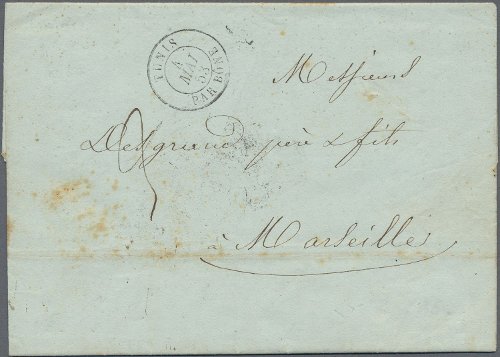 TUNIS
4
MAI
53
PAR BONE
Messieurs
Desgrand père & fils
à Marseille